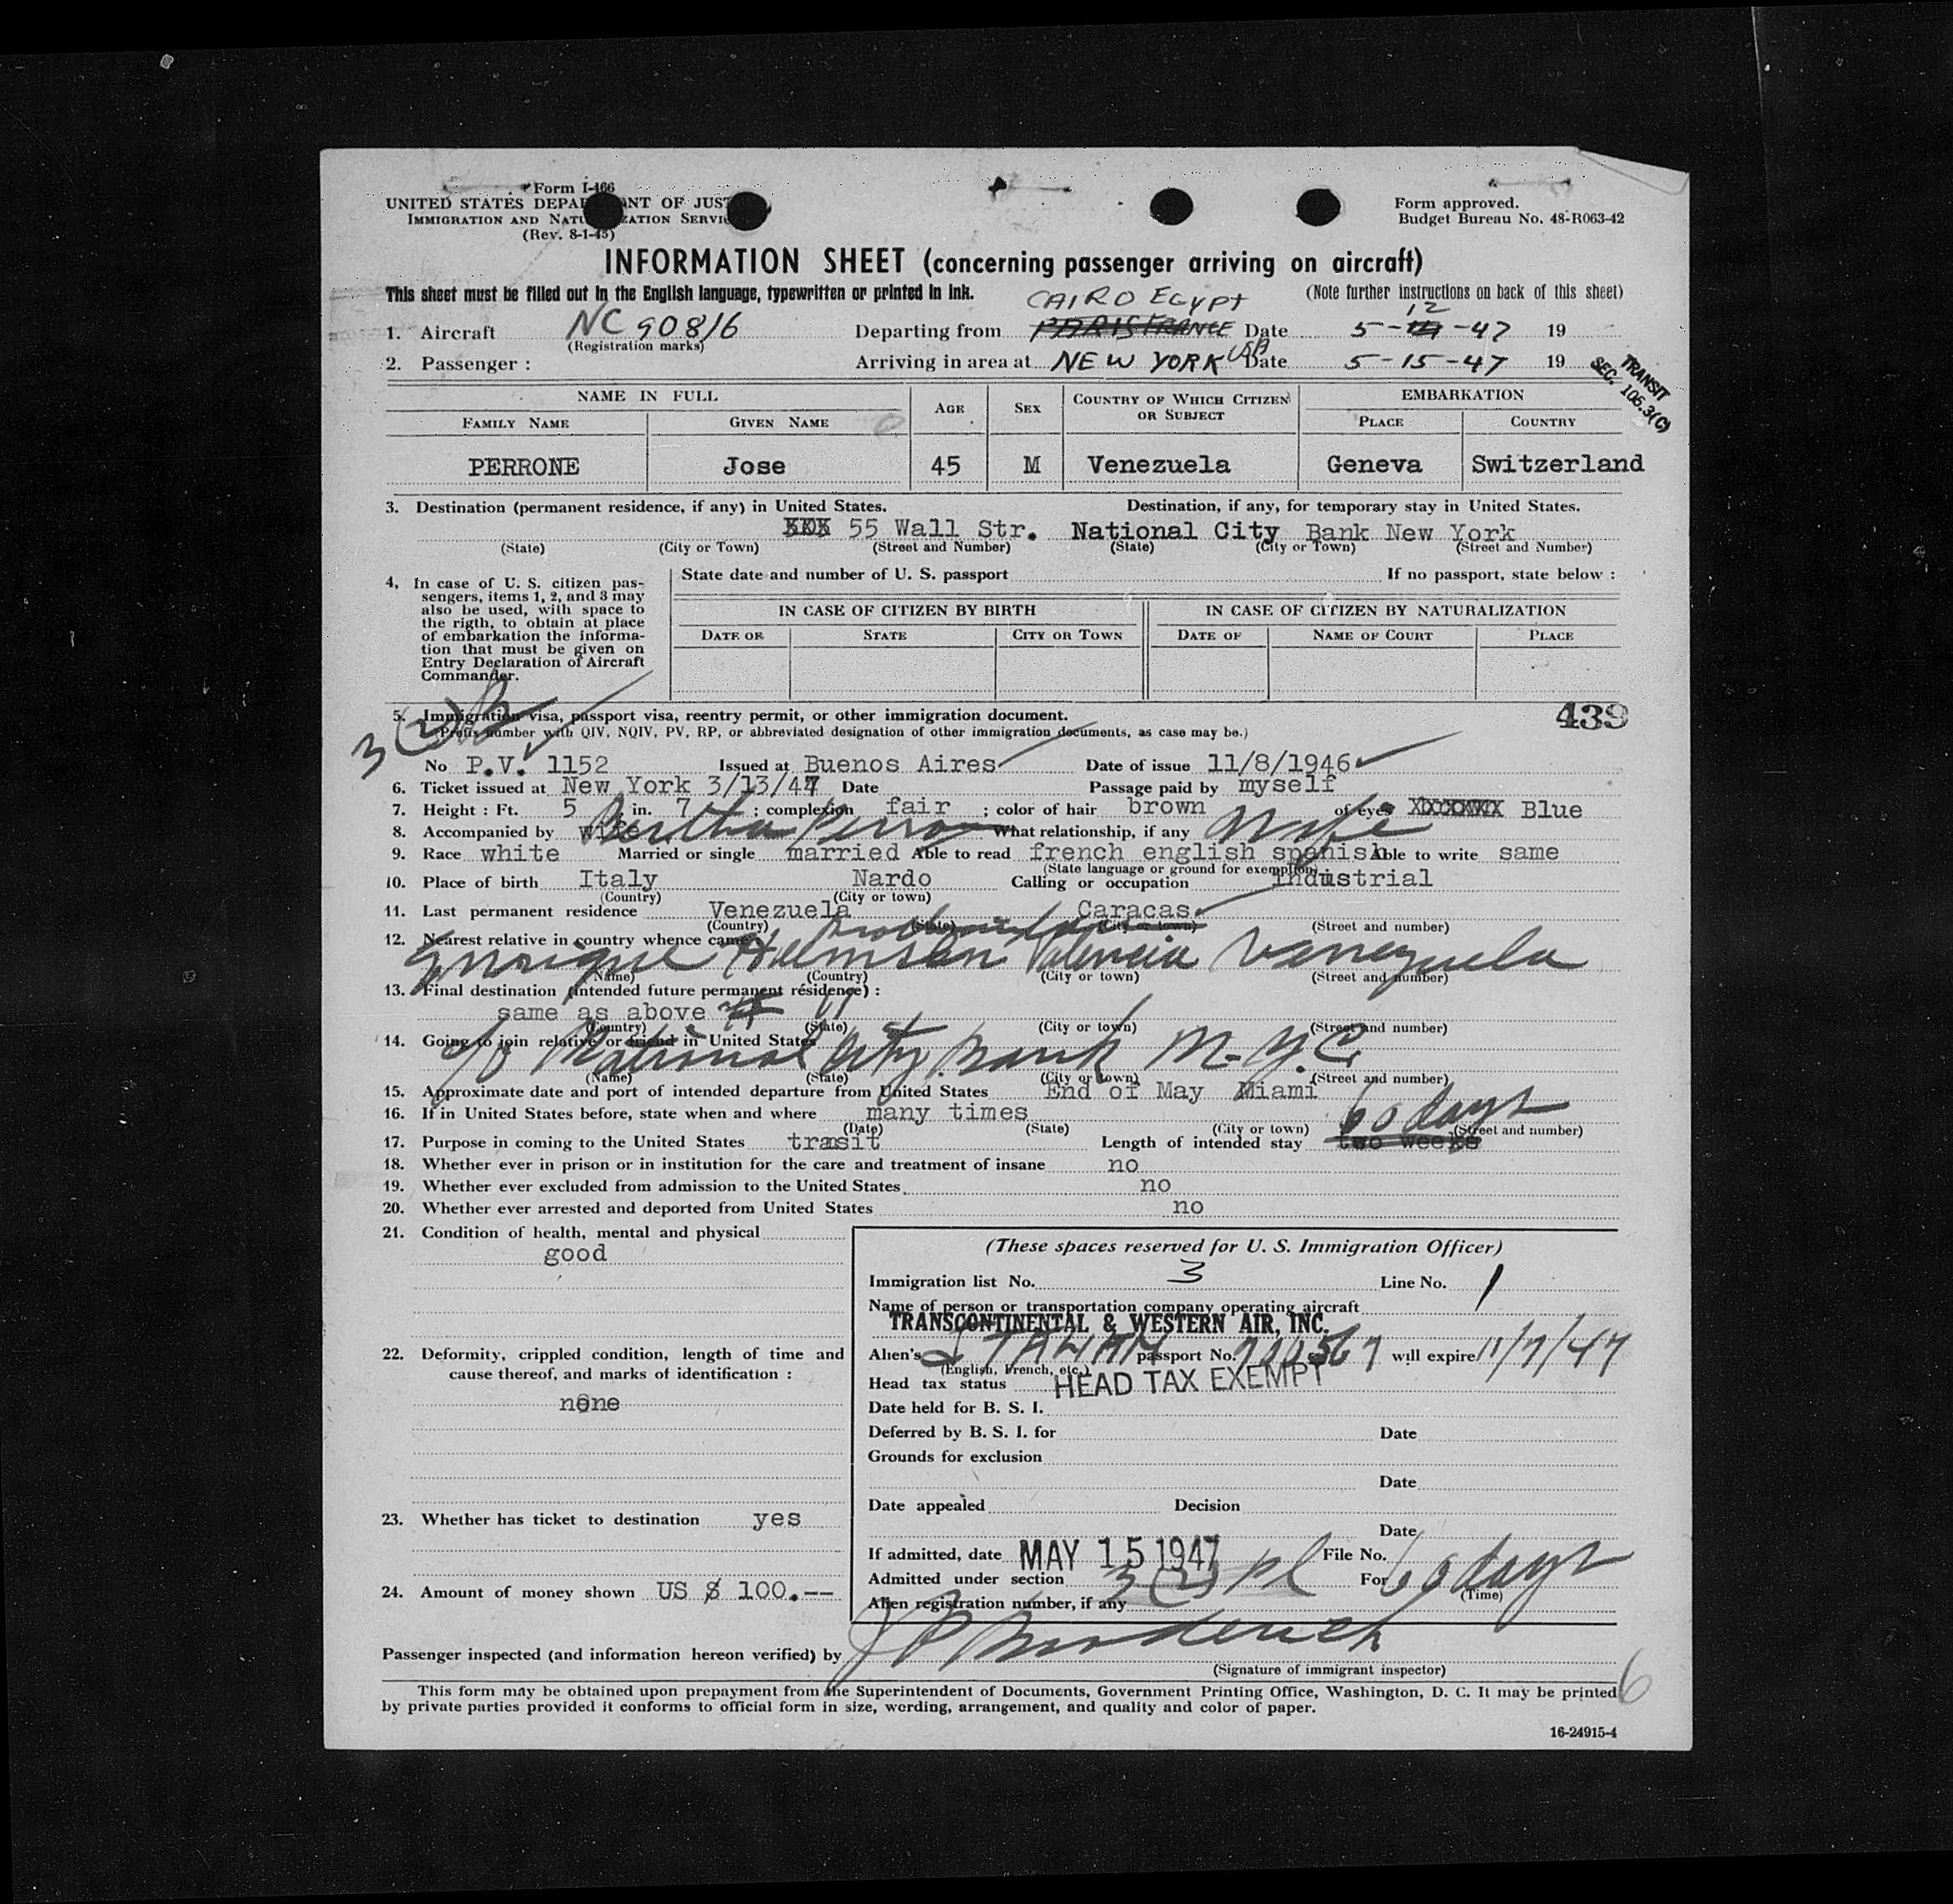 Form I-466
UNITED STATES DEPARTMENT OF JUSTICE
IMMIGRATION AND NATURALIZATION SERVICE
(Rev. 8-1-45)
Form approved.
Budget Bureau No. 48-R063-42
INFORMATION SHEET (concerning passenger arriving on aircraft)
This sheet must be filled out in the English language, typewritten or printed in ink.
(Note further instructions on back of this sheet)
CAIRO EGYPT
12
1. Aircraft NC 90816 Departing from PARIS FRANCE Date 5- -47 19
(Registration marks)
2. Passenger : Arriving in area at NEW YORK USA Date 5-15-47 19
TRANSIT
SEC. 105.3(C)
NAME IN FULL AGE SEX COUNTRY OF WHICH CITIZEN OR SUBJECT EMBARKATION
FAMILY NAME GIVEN NAME PLACE COUNTRY
PERRONE Jose 45 M Venezuela Geneva Switzerland
3. Destination (permanent residence, if any) in United States. Destination, if any, for temporary stay in United States.
55 Wall Str. National City Bank New York
(State) (City or Town) (Street and Number) (State) (City or Town) (Street and Number)
4, In case of U. S. citizen pas-
sengers, items 1, 2, and 3 may
also be used, with space to
the rigth, to obtain at place
of embarkation the informa-
tion that must be given on
Entry Declaration of Aircraft
Commander.
State date and number of U. S. passport If no passport, state below :
IN CASE OF CITIZEN BY BIRTH IN CASE OF CITIZEN BY NATURALIZATION
DATE OF STATE CITY OR TOWN DATE OF NAME OF COURT PLACE
3(2)
439
5. Immigration visa, passport visa, reentry permit, or other immigration document.
(Prefix number with QIV, NQIV, PV, RP, or abbreviated designation of other immigration documents, as case may be.)
No P.V. 1152 Issued at Buenos Aires Date of issue 11/8/1946
6. Ticket issued at New York 3/13/47 Date Passage paid by myself
7. Height : Ft. 5 in. 7 ; complexion fair ; color of hair brown of eyes Blue
8. Accompanied by wife Bertha Perrone What relationship, if any Wife
9. Race white Married or single married Able to read french english spanish Able to write same
(State language or ground for exemption)
10. Place of birth Italy Nardo Calling or occupation Industrial
(Country) (City or town)
11. Last permanent residence Venezuela Caracas
(Country) (State) (City or town) (Street and number)
12. Nearest relative in country whence came
Enrique Valencia Venezuela
(Name) (Country) (City or town) (Street and number)
13. Final destination (intended future permanent résidence) :
same as above
(Country) (State) (City or town) (Street and number)
14. Going to join relative or friend in United States
c/o National City Bank N.Y.C.
(Name) (State) (City or town) (Street and number)
15. Approximate date and port of intended departure from United States End of May Miami
16. If in United States before, state when and where many times
(Date) (State) (City or town) (Street and number)
60 days
17. Purpose in coming to the United States transit Length of intended stay two weeks
18. Whether ever in prison or in institution for the care and treatment of insane no
19. Whether ever excluded from admission to the United States no
20. Whether ever arrested and deported from United States no
21. Condition of health, mental and physical
good
22. Deformity, crippled condition, length of time and
cause thereof, and marks of identification :
none
23. Whether has ticket to destination yes
24. Amount of money shown US $ 100.--
(These spaces reserved for U. S. Immigration Officer)
Immigration list No. 3 Line No. 1
Name of person or transportation company operating aircraft
TRANSCONTINENTAL & WESTERN AIR, INC.
Alien's ITALIAN passport No. will expire 11/7/47
(English, French, etc.)
Head tax status HEAD TAX EXEMPT
Date held for B. S. I.
Deferred by B. S. I. for Date
Grounds for exclusion
Date
Date appealed Decision
Date
If admitted, date MAY 15 1947 File No.
Admitted under section 3(2) For 60 days
(Time)
Alien registration number, if any
Passenger inspected (and information hereon verified) by J P Broderick
(Signature of immigrant inspector)
6
This form may be obtained upon prepayment from the Superintendent of Documents, Government Printing Office, Washington, D. C. It may be printed
by private parties provided it conforms to official form in size, wording, arrangement, and quality and color of paper.
16-24915-4